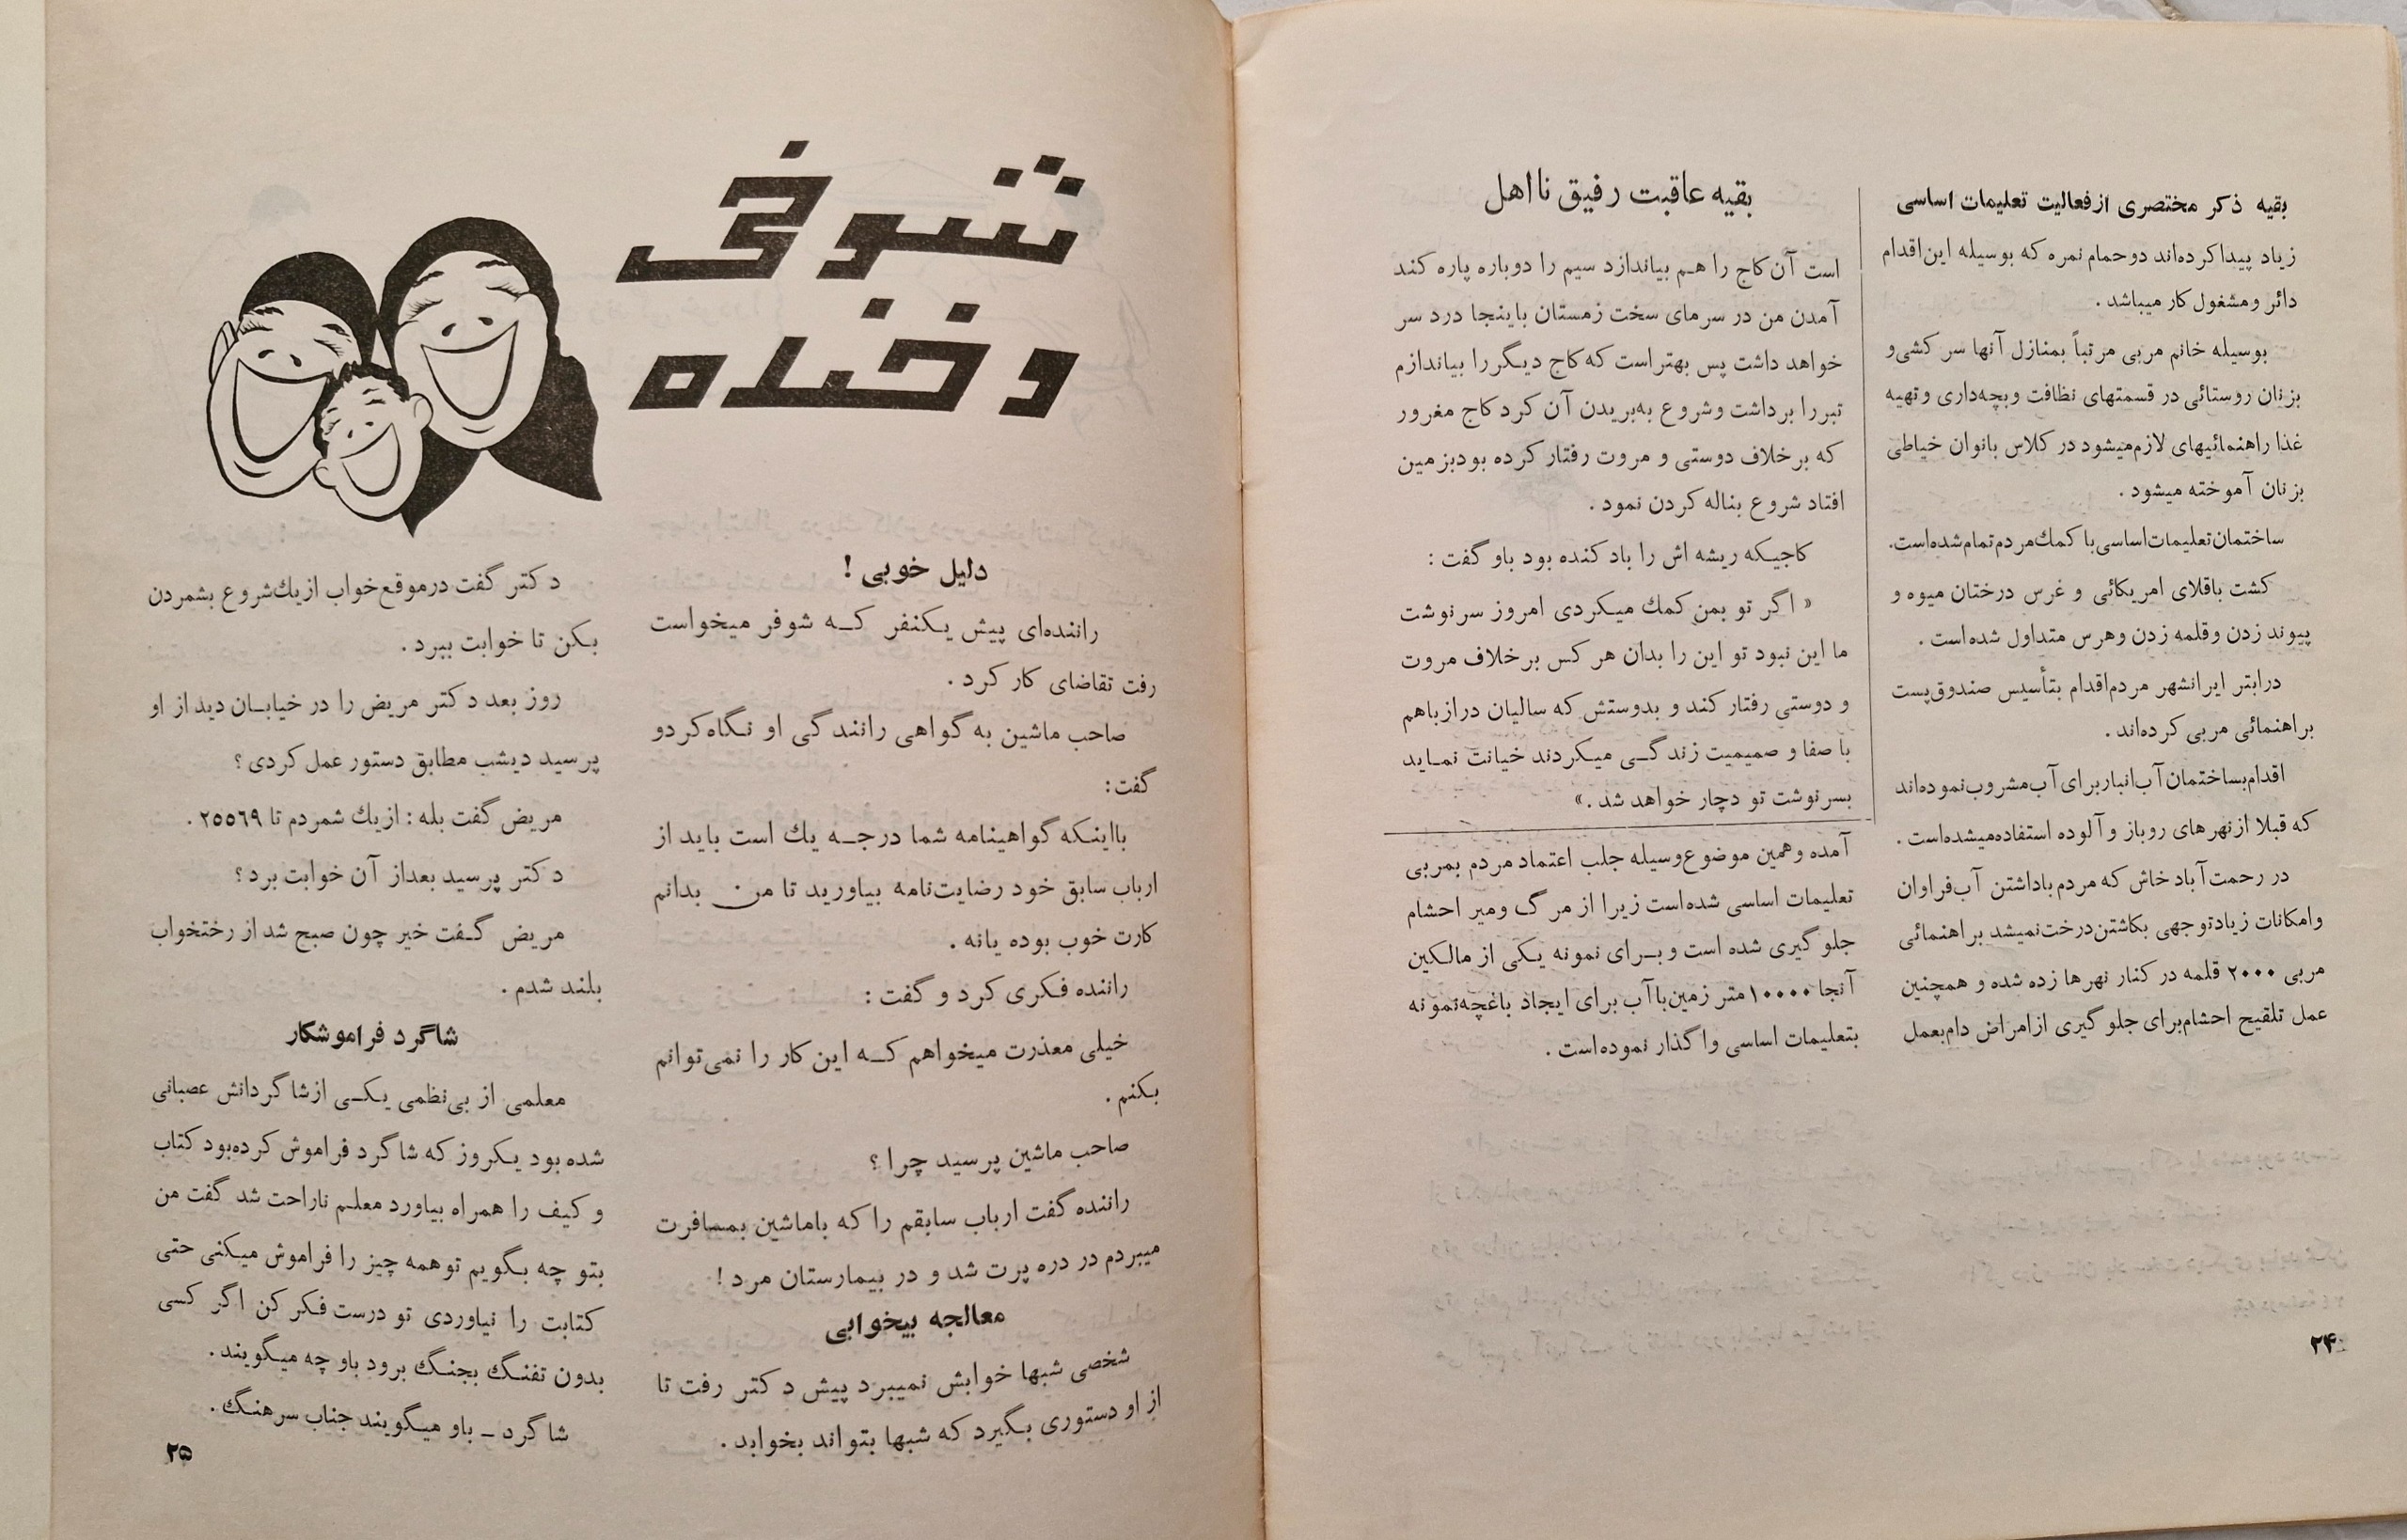 بقیه ذکر مختصری از فعالیت تعلیمات اساسی
زیاد پیدا کرده‌اند دو حمام نمره که بوسیله این اقدام
دائر و مشغول کار میباشد .
بوسیله خانم مربی مرتباً بمنازل آنها سر کشی و
بزنان روستائی در قسمتهای نظافت و بچه‌داری و تهیه
غذا راهنمائیهای لازم میشود در کلاس بانوان خیاطی
بزنان آموخته میشود .
ساختمان تعلیمات اساسی با کمك مردم تمام شده است.
کشت باقلای امریکائی و غرس درختان میوه و
پیوند زدن و قلمه زدن و هرس متداول شده است .
درابتر ایرانشهر مردم اقدام بتأسیس صندوق پست
براهنمائی مربی کرده‌اند .
اقدام بساختمان آب انبار برای آب مشروب نموده‌اند
که قبلا از نهرهای روباز و آلوده استفاده میشده است .
در رحمت آباد خاش که مردم باداشتن آب فراوان
و امکانات زیاد توجهی بکاشتن درخت نمیشد براهنمائی
مربی ۲۰۰۰ قلمه در کنار نهرها زده شده و همچنین
عمل تلقیح احشام برای جلو گیری از امراض دام بعمل
بقیه عاقبت رفیق نااهل
است آن کاج را هـم بیاندازد سیم را دوباره پاره کند
آمدن من در سرمای سخت زمستان باینجا درد سر
خواهد داشت پس بهتر است که کاج دیـگر را بیاندازم
تبر را برداشت و شروع به‌بریدن آن کرد کاج مغرور
که برخلاف دوستی و مروت رفتار کرده بود بزمین
افتاد شروع بناله کردن نمود .
کاجیکه ریشه اش را باد کنده بود باو گفت :
« اگر تو بمن کمك میکردی امروز سرنوشت
ما این نبود تو این را بدان هر کس برخلاف مروت
و دوستی رفتار کند و بدوستش که سالیان دراز باهم
با صفا و صمیمیت زندگـی میکردند خیانت نمـاید
بسرنوشت تو دچار خواهد شد .»
آمده و همین موضوع وسیله جلب اعتماد مردم بمربی
تعلیمات اساسی شده است زیرا از مرگ و میر احشام
جلو گیری شده است و بـرای نمونه یـکی از مالـکین
آنجا ۱۰۰۰۰ متر زمین با آب برای ایجاد باغچه نمونه
بتعلیمات اساسی واگذار نموده است .
۲۴
شوخی
و خنده
دلیل خوبی !
راننده‌ای پیش یـکنفر کـه شوفر میخواست
رفت تقاضای کار کرد .
صاحب ماشین به گواهی رانندگی او نـگاه کرد و
گفت:
بااینـکه گواهینامه شما درجـه یك است باید از
ارباب سابق خود رضایت‌نامه بیاورید تا من بدانم
کارت خوب بوده یا نه .
راننده فـکری کرد و گفت :
خیلی معذرت میخواهم کـه این کار را نمی‌توانم
بکنم .
صاحب ماشین پرسید چرا ؟
راننده گفت ارباب سابقم را که باماشین بمسافرت
میبردم در دره پرت شد و در بیمارستان مرد !
معالجه بیخوابی
شخصی شبها خوابش نمیبرد پیش دکتر رفت تا
از او دستوری بـگیرد که شبها بتواند بخوابد .
دکتر گفت درموقع خواب ازیك شروع بشمردن
بـکن تا خوابت ببرد .
روز بعد دکتر مریض را در خیابـان دید از او
پرسید دیشب مطابق دستور عمل کردی ؟
مریض گفت بله : ازیك شمردم تا ۲۵۵۶۹ .
دکتر پرسید بعد از آن خوابت برد ؟
مریض گـفت خیر چون صبح شد از رختخواب
بلند شدم .
شاگرد فراموشکار
معلمی از بی‌نظمی یـکـی ازشاگردانش عصبانی
شده بود یـکروز که شاگرد فراموش کرده‌بود کتاب
و کیف را همراه بیاورد معلـم ناراحت شد گفت من
بتو چه بـگویم تو همه چیز را فراموش میـکنی حتی
کتابت را نیاوردی تو درست فـکر کن اگر کسی
بدون تفنـگ بجنـگ برود باو چه میـگویند .
شاگرد ـ باو میـگویند جناب سرهنـگ .
۲۵